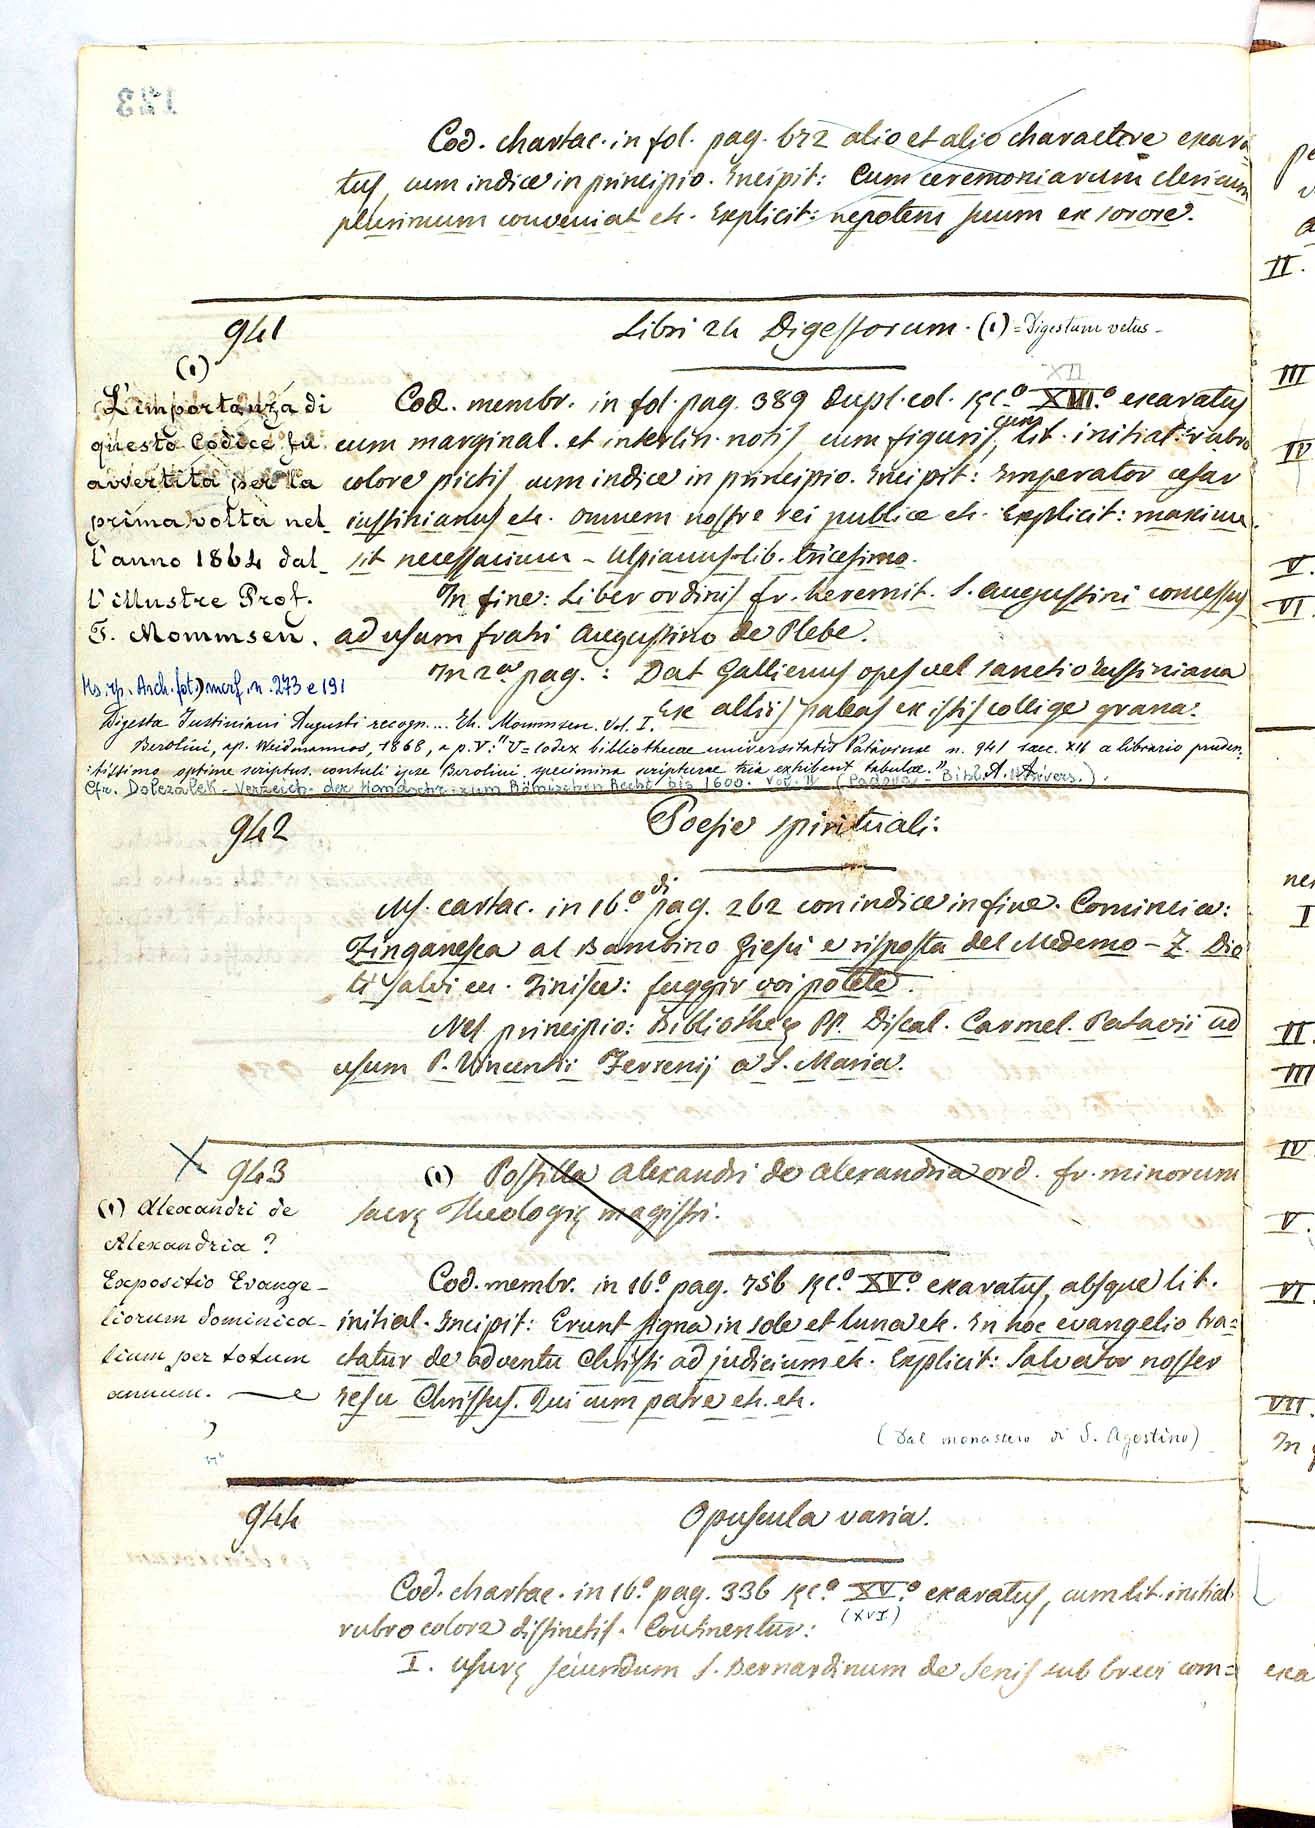 Cod. chartac. in fol. pag. 672 alio et alio charactere exara
tus, cum indice in principio. Incipit: Cum ceremoniarum clericum
plurimum conveniat etc. Explicit: nepotem suum ex sorore.
941
Libri 24 Digestorum. (1) = Digestum vetus -
(1)
L'importanza di
questo Codice fu
avvertita per la
prima volta nel_
l'anno 1864 dal_
l'illustre Prof.
T. Mommsen.
XII
Cod. membr. in fol. pag. 389 dupl. col. sęc.º XIII.º exaratus
cum marginal. et interlin. notis, cum figuris, cum lit. initial. rubro
colore pictis, cum indice in principio. Incipit: Imperator cesar
iustinianus etc. omnem nostre rei publice etc. Explicit: maxime
sit necessarium - Ulpianus lib. tricesimo.
In fine: Liber ordinis fr. heremit. S. Augustini concessus
ad usum fratri Augustino de Plebe.
In 2ª pag.: Dat Gallienus opes vel sanctio Iustiniana
Ex aliis paleas ex istis collige grana.
Ms. rip. Arch. fot. morf. n. 273 e 191
Digesta Justiniani Augusti recogn.... Th. Mommsen. Vol. I.
Berolini, ap. Weidmannos, 1868, a p. V: "U = codex bibliothecae universitatis Patavinae n. 941 saec. XII a librario pruden_
tissimo optime scriptus. contuli ipse Berolini. specimina scripturae tria exhibent tabulae."
Cfr. Dolezalek - Verzeich. der Handschr. zum Römischen Recht bis 1600. Vol. II (Padova - Bibl. Univers.).
942
Poesie spirituali.
Ms. cartac. in 16.º di pag. 262 con indice in fine. Comincia:
Zinganesca al Bambino Giesù e risposta del Medemo - Z. Dio
ti salvi etc. Finisce: fuggir voi potete.
Nel principio: Bibliothecę PP. Discal. Carmel. Patavii ad
usum P. Vincentii Ferrerij a S. Maria.
943
(1) Postilla Alexandri de Alexandria ord. fr. minorum
sacrę Theologię magistri.
(1) Alexandri de
Alexandria?
Expositio Evange_
liorum dominica_
lium per totum
annum.
Cod. membr. in 16º pag. 756 sęc.º XV.º exaratus, absque lit.
initial. Incipit: Erunt signa in sole et luna etc. In hoc evangelio tra=
ctatur de adventu Christi ad judicium etc. Explicit: Salvator noster
Jesu Christus. Qui cum patre etc. etc.
(Dal monastero di S. Agostino)
944
Opuscula varia.
Cod. chartac. in 16.º pag. 336 sęc.º XV.º exaratus, cum lit. initial.
(XVI)
rubro colore distinctis. Continentur:
I. Usurę secundum S. Bernardinum de Senis sub brevi com=